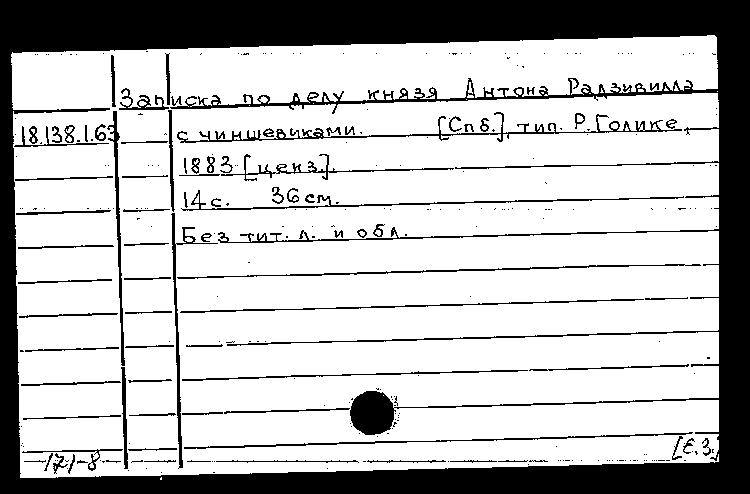 Записка по делу князя Антона Радзивилла
18.138.1.63 с чиншевиками. [Спб.], тип. Р. Голике,
1883 [ценз.].
14 с. 36 см.
Без тит. л. и обл.
171-8 [Е.З.]